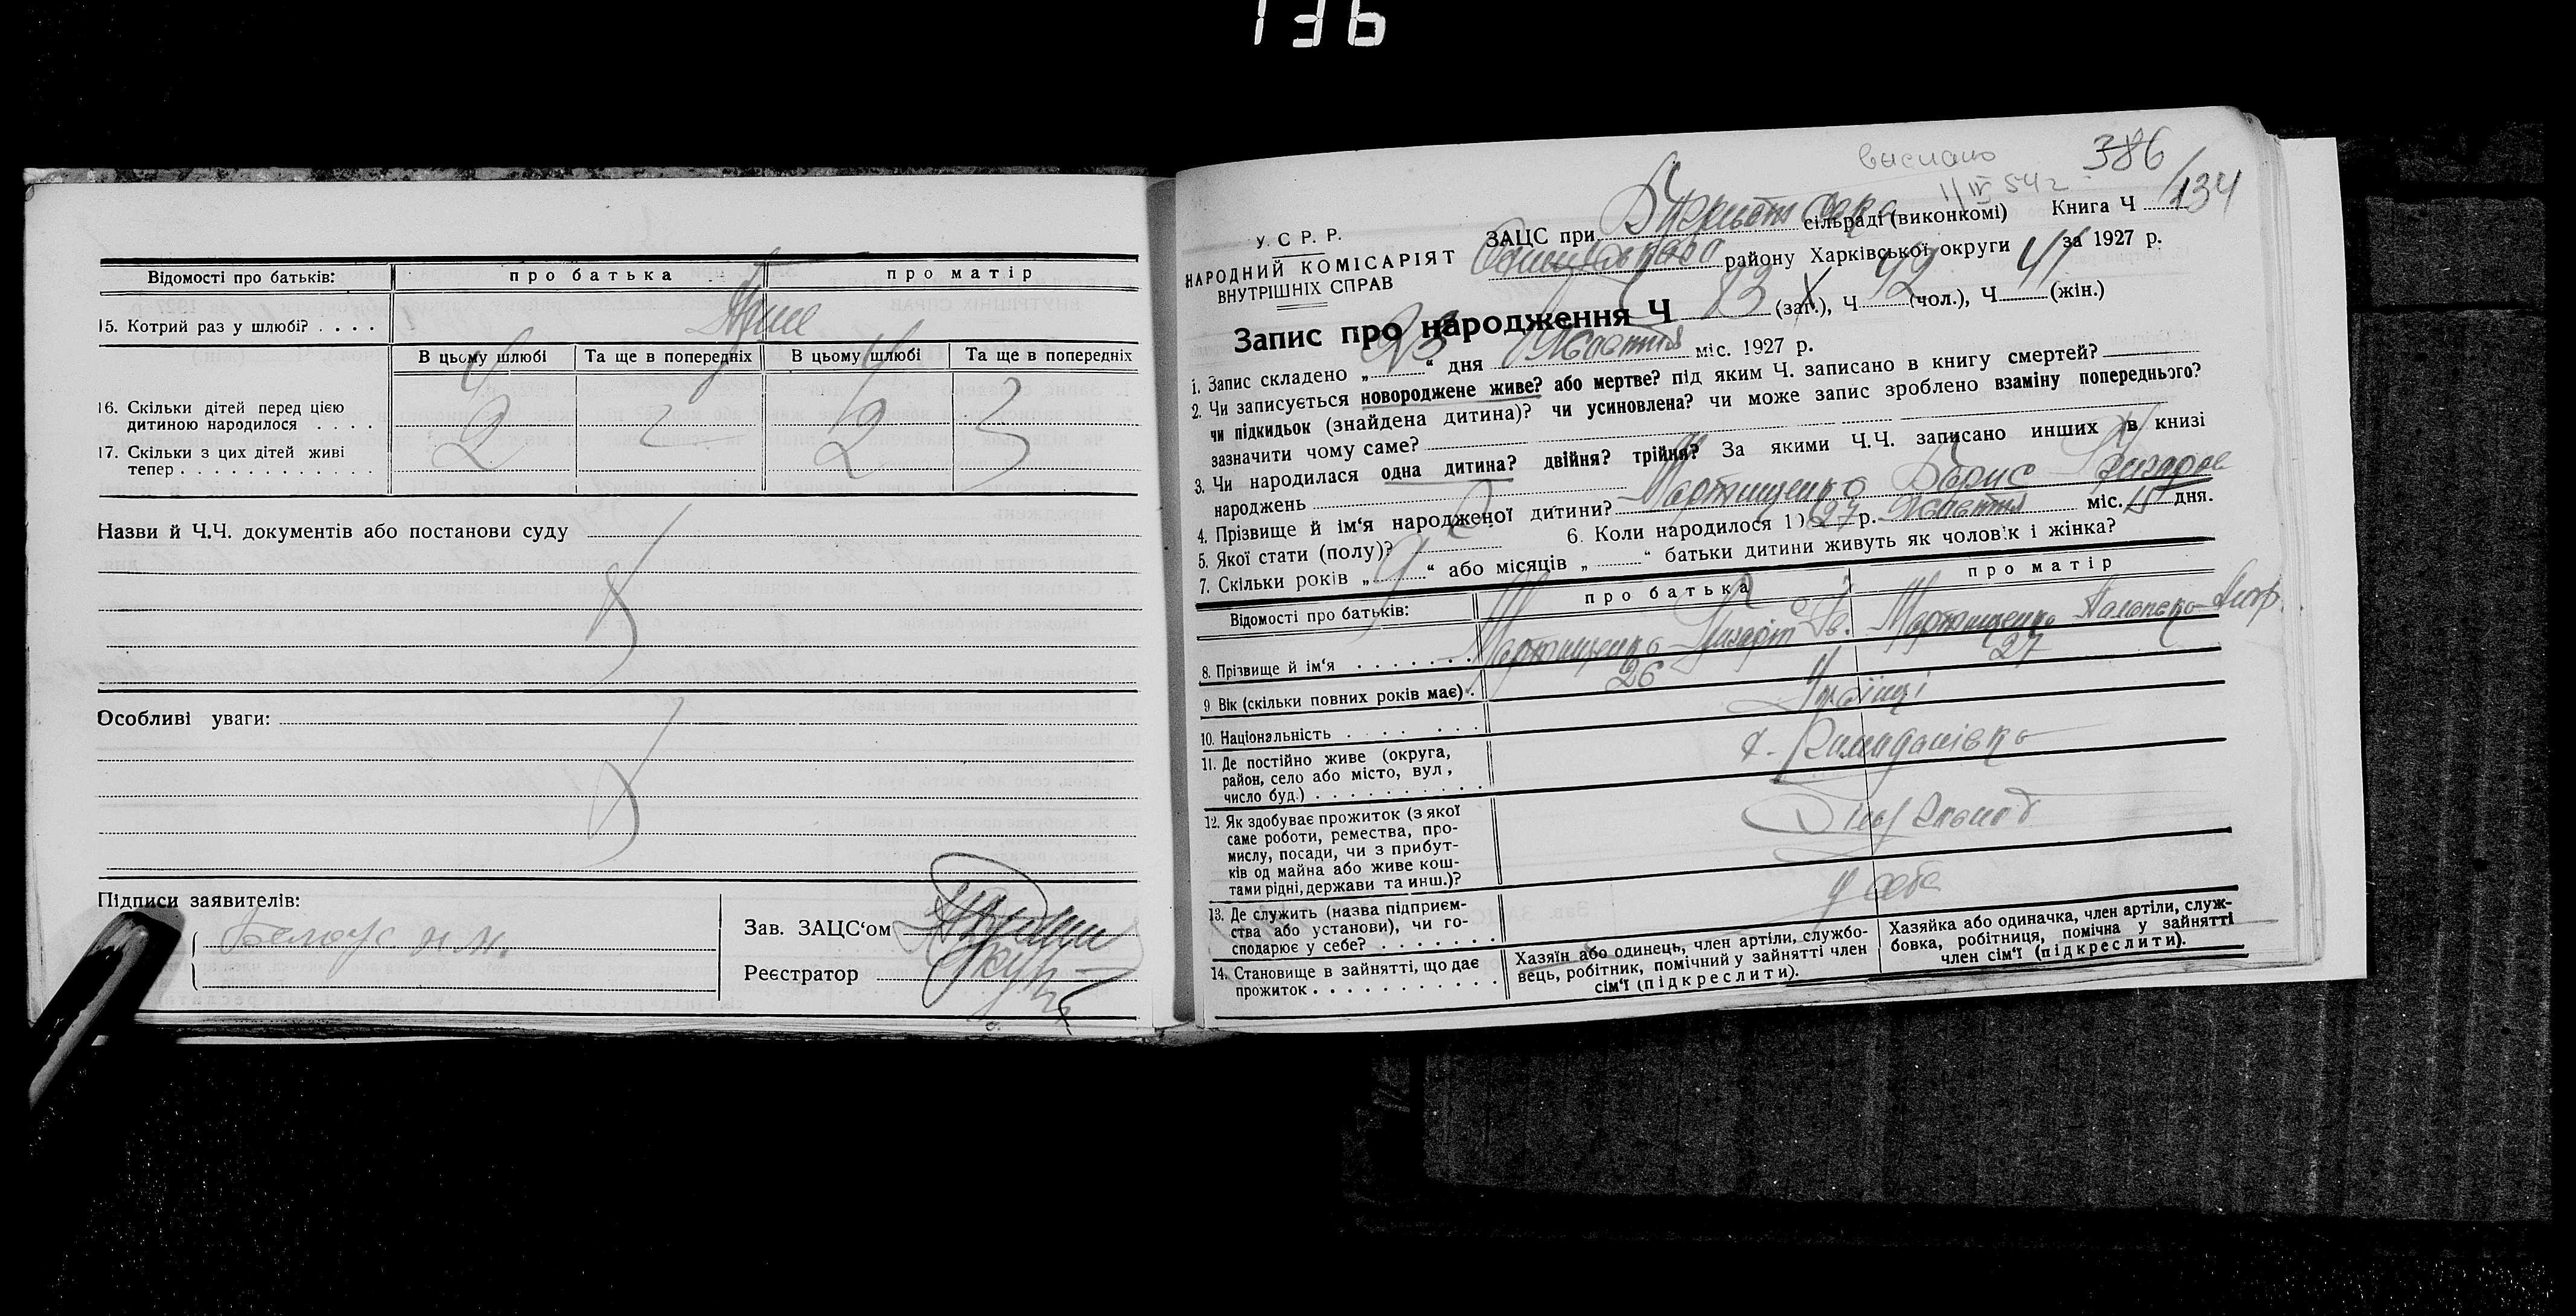 136
Відомості про батьків: про батька про матір
15. Котрий раз у шлюбі? . . . .
В цьому шлюбі Та ще в попередніх В цьому шлюбі Та ще в попередніх
16. Скільки дітей перед цією
дитиною народилося . . . .
2 2
17. Скільки з цих дітей живі
тепер . . . . . . . . . . . .
Назви й Ч.Ч. документів або постанови суду
Особливі уваги:
Підписи заявителів:
Зав. ЗАЦС‘ом
Реєстратор
386
/134
У. С. Р. Р.
НАРОДНИЙ КОМІСАРІЯТ
ВНУТРІШНІХ СПРАВ
ЗАЦС при сільраді (виконкомі) Книга Ч
району Харківської округи за 1927 р.
Запис про народження Ч 83 (заг.), Ч 42 (чол.), Ч 41 (жін.)
1. Запис складено „ “ дня Жовтня міс. 1927 р.
2. Чи записується новороджене живе? або мертве? під яким Ч. записано в книгу смертей?
чи підкидьок (знайдена дитина)? чи усиновлена? чи може запис зроблено взаміну попереднього?
зазначити чому саме?
3. Чи народилася одна дитина? двійня? трійня? За якими Ч.Ч. записано инших в книзі
народжень
4. Прізвище й ім‘я народженої дитини? Мартищенко Борис
5. Якої стати (полу)? 6. Коли народилося 1927 р. Жовтня міс. дня.
7. Скільки років „ “ або місяців „ “ батьки дитини живуть як чоловік і жінка?
Відомості про батьків: про батька про матір
8. Прізвище й ім‘я . . . . . . . Мартищенко Мартищенко
9 Вік (скільки повних років має) . 26 27
10. Національність . . . . . . . Українці
11. Де постійно живе (округа,
район, село або місто, вул,
число буд.) . . . . . . . . . .
12. Як здобуває прожиток (з якої
саме роботи, ремества, про-
мислу, посади, чи з прибут-
ків од майна або живе кош-
тами рідні, держави та инш.)?
13. Де служить (назва підприєм-
ства або установи), чи го-
сподарює у себе? . . . . . . .
у себе
14. Становище в зайнятті, що дає
прожиток . . . . . . . . . . .
Хазяїн або одинець, член артіли, службо-
вець, робітник, помічний у зайнятті член
сім‘ї (підкреслити).
Хазяйка або одиначка, член артіли, служ-
бовка, робітниця, помічна у зайнятті
член сім‘ї (підкреслити).